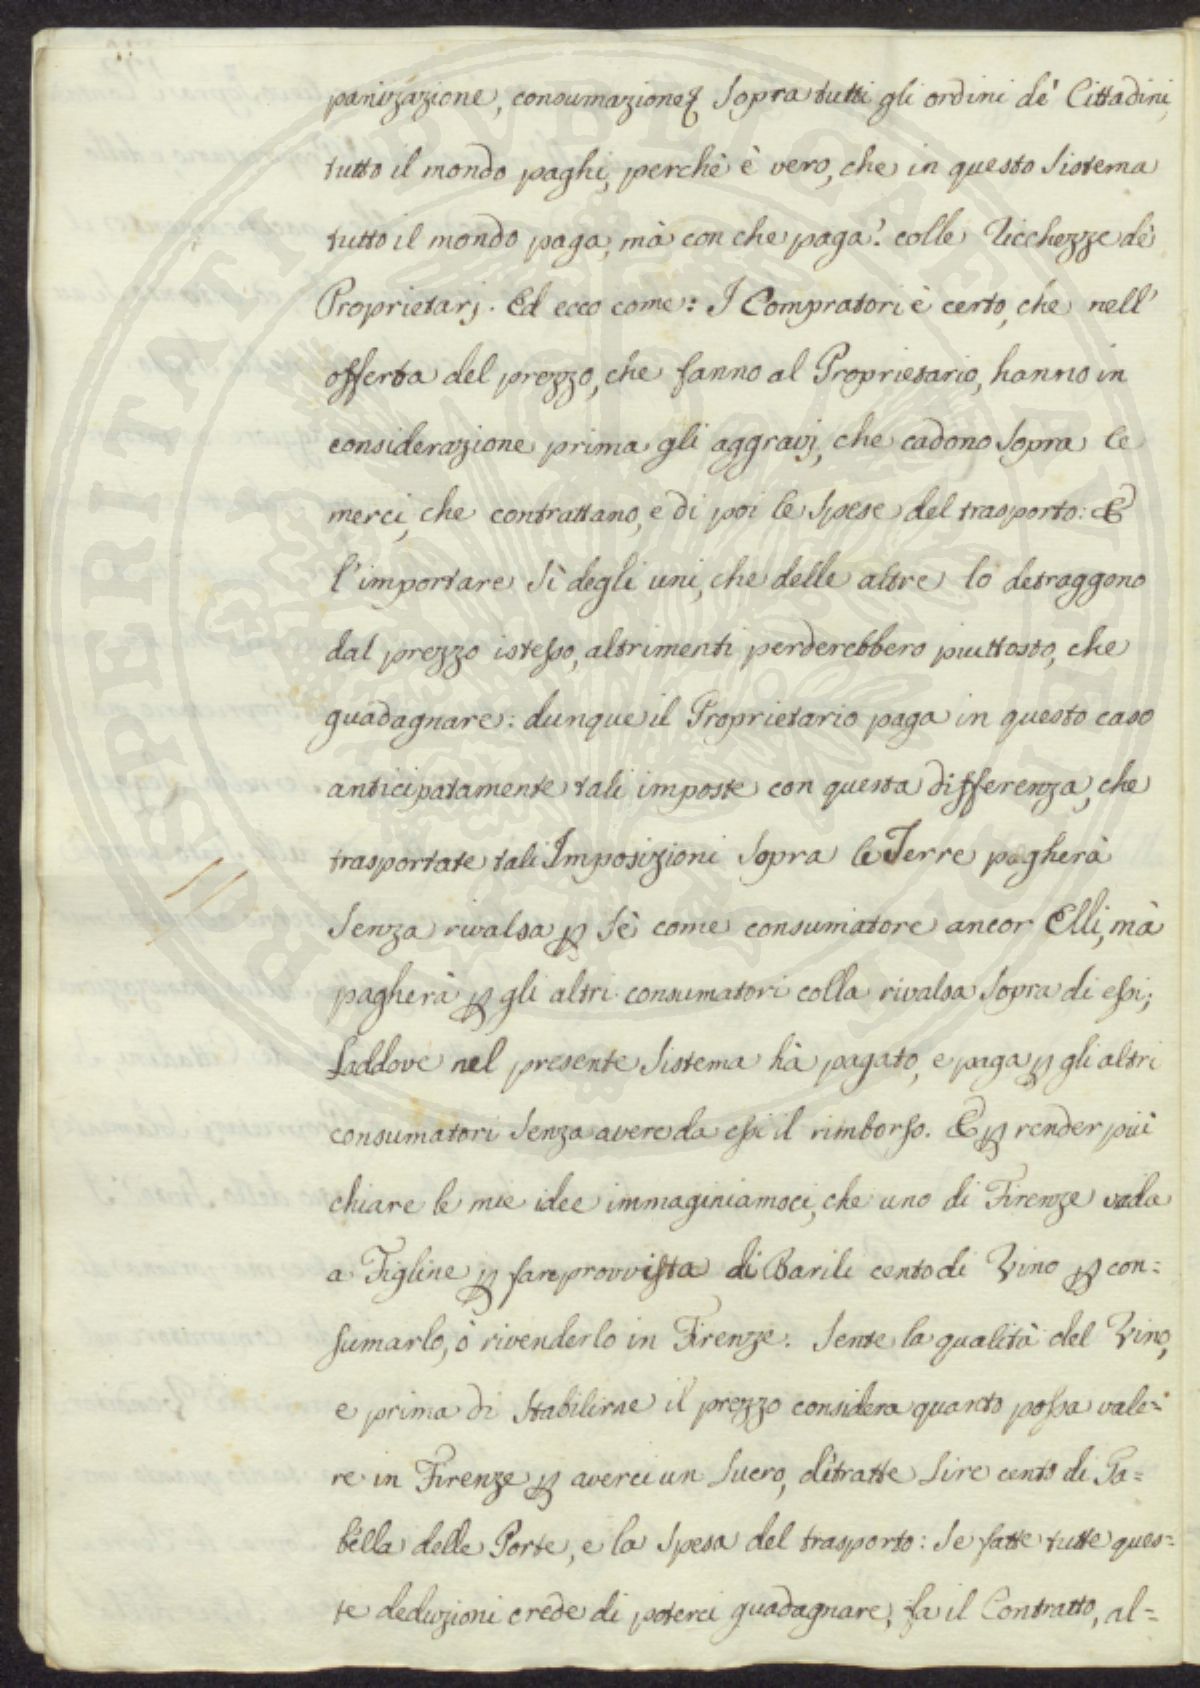 panizazione, consumazione Sopra tutti gli ordini de' Cittadini,
tutto il mondo paghi, perchè è vero, che in questo Sistema
tutto il mondo paga, mà con che paga? colle Ricchezze dè
Proprietarj. Ed ecco come: I Compratori è certo, che nell'
offerta del prezzo, che fanno al Proprietario, hanno in
considerazione prima gli aggravj, che cadono Sopra le
merci, che contrattano, e di poi le Spese del trasporto: E
l'importare Sì degli uni, che delle altre lo detraggono
dal prezzo istesso, altrimenti perderebbero piuttosto, che
guadagnare: dunque il Proprietario paga in questo caso
anticipatamente tali imposte con questa differenza, che
trasportate tali Imposizioni Sopra le Terre pagherà
Senza rivalsa p Sè come consumatore ancor Elli, mà
pagherà p gli altri consumatori colla rivalsa Sopra di essi;
Laddove nel presente Sistema hà pagato, e paga p gli altri
consumatori Senza avere da essi il rimborso. E p render più
chiare le mie idee immaginiamoci, che uno di Firenze vada
a Figline p far provvista di Barili cento di Vino p con=
sumarlo, ò rivenderlo in Firenze. Sente la qualità del Vino,
e prima di Stabilirne il prezzo considera quanto possa vale=
re in Firenze p averci un lucro, detratte Lire cento di Ga=
bella delle Porte, e la Spesa del trasporto: Se fatte tutte ques=
te deduzioni crede di poterci guadagnare, fa il Contratto, al=
PROSPERITATI PVBLICAE